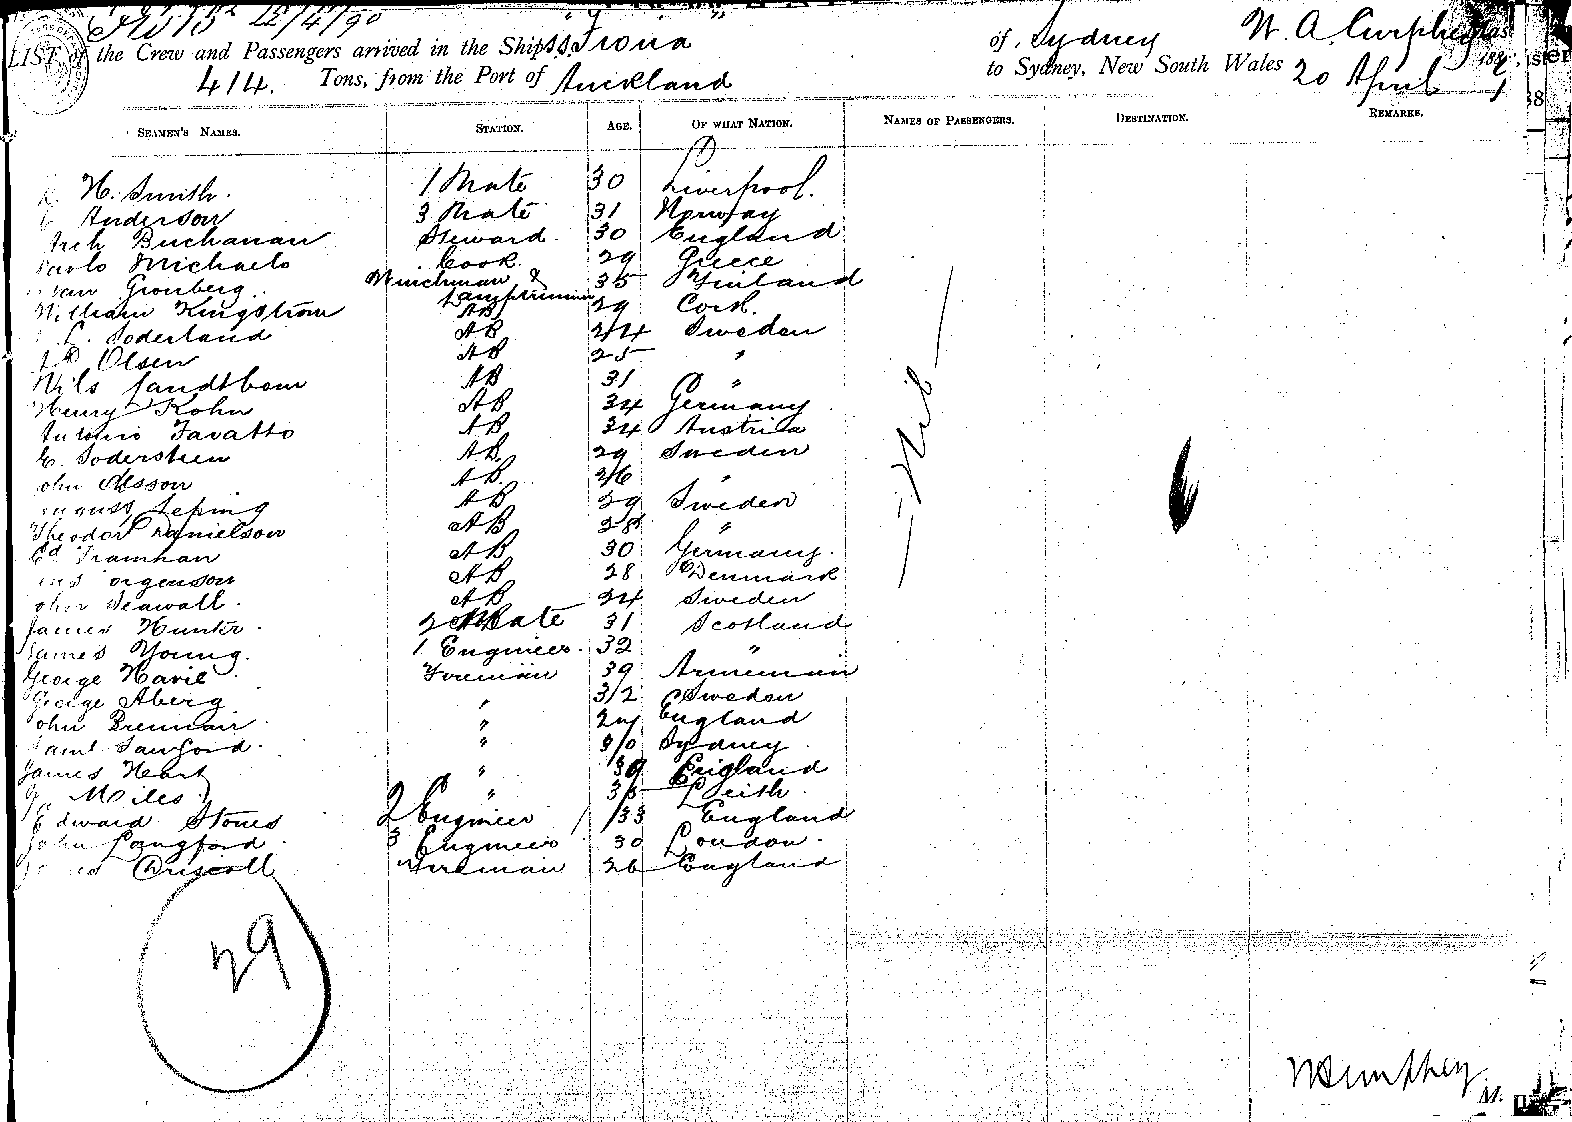 12/4/90
LIST of the Crew and Passengers arrived in the Ship S.S. Fiona of Sydney W. A. Curphey
414. Tons, from the Port of Auckland to Sydney, New South Wales 20 April 1
SEAMEN'S NAMES. STATION. AGE. OF WHAT NATION. NAMES OF PASSENGERS. DESTINATION. REMARKS.
H. Smith. 1 Mate 30 Liverpool.
Anderson 3 Mate 31 Norway
Arch Buchanan Steward 30 England
Paolo Michaelo Cook 29 Greece
Gronberg Winchman & Lamptrimmer 35 Finland
William Kingstrom AB 29 Cork.
Soderland AB 24 Sweden
Olsen AB 25 "
Nils Sandtbom AB 31 "
Henry Kohn AB 34 Germany
Antonio Tavatto AB 34 Austria
E. Soderstien AB 29 Sweden
John Olsson AB 26 "
August Leping AB 29 Sweden
Theodor Danielson AB 28 "
Ed Tramhan AB 30 Germany.
Jorgenson AB 28 Denmark
John Seawall. AB 24 Sweden
James Hunter 2 Mate 31 Scotland
James Young. 1 Engineer 32 "
George Harie Fireman 39 Armenian
George Aberg " 32 Sweden
John Brennan " 24 England
Saml Sanford. " 30 Sydney
James Heart " 39 England
Miles " 35 Leith
Edward Stones 2 Engineer 33 England
John Langford 3 Engineer 30 London.
James Driscoll Fireman 26 England
— Nil —
29